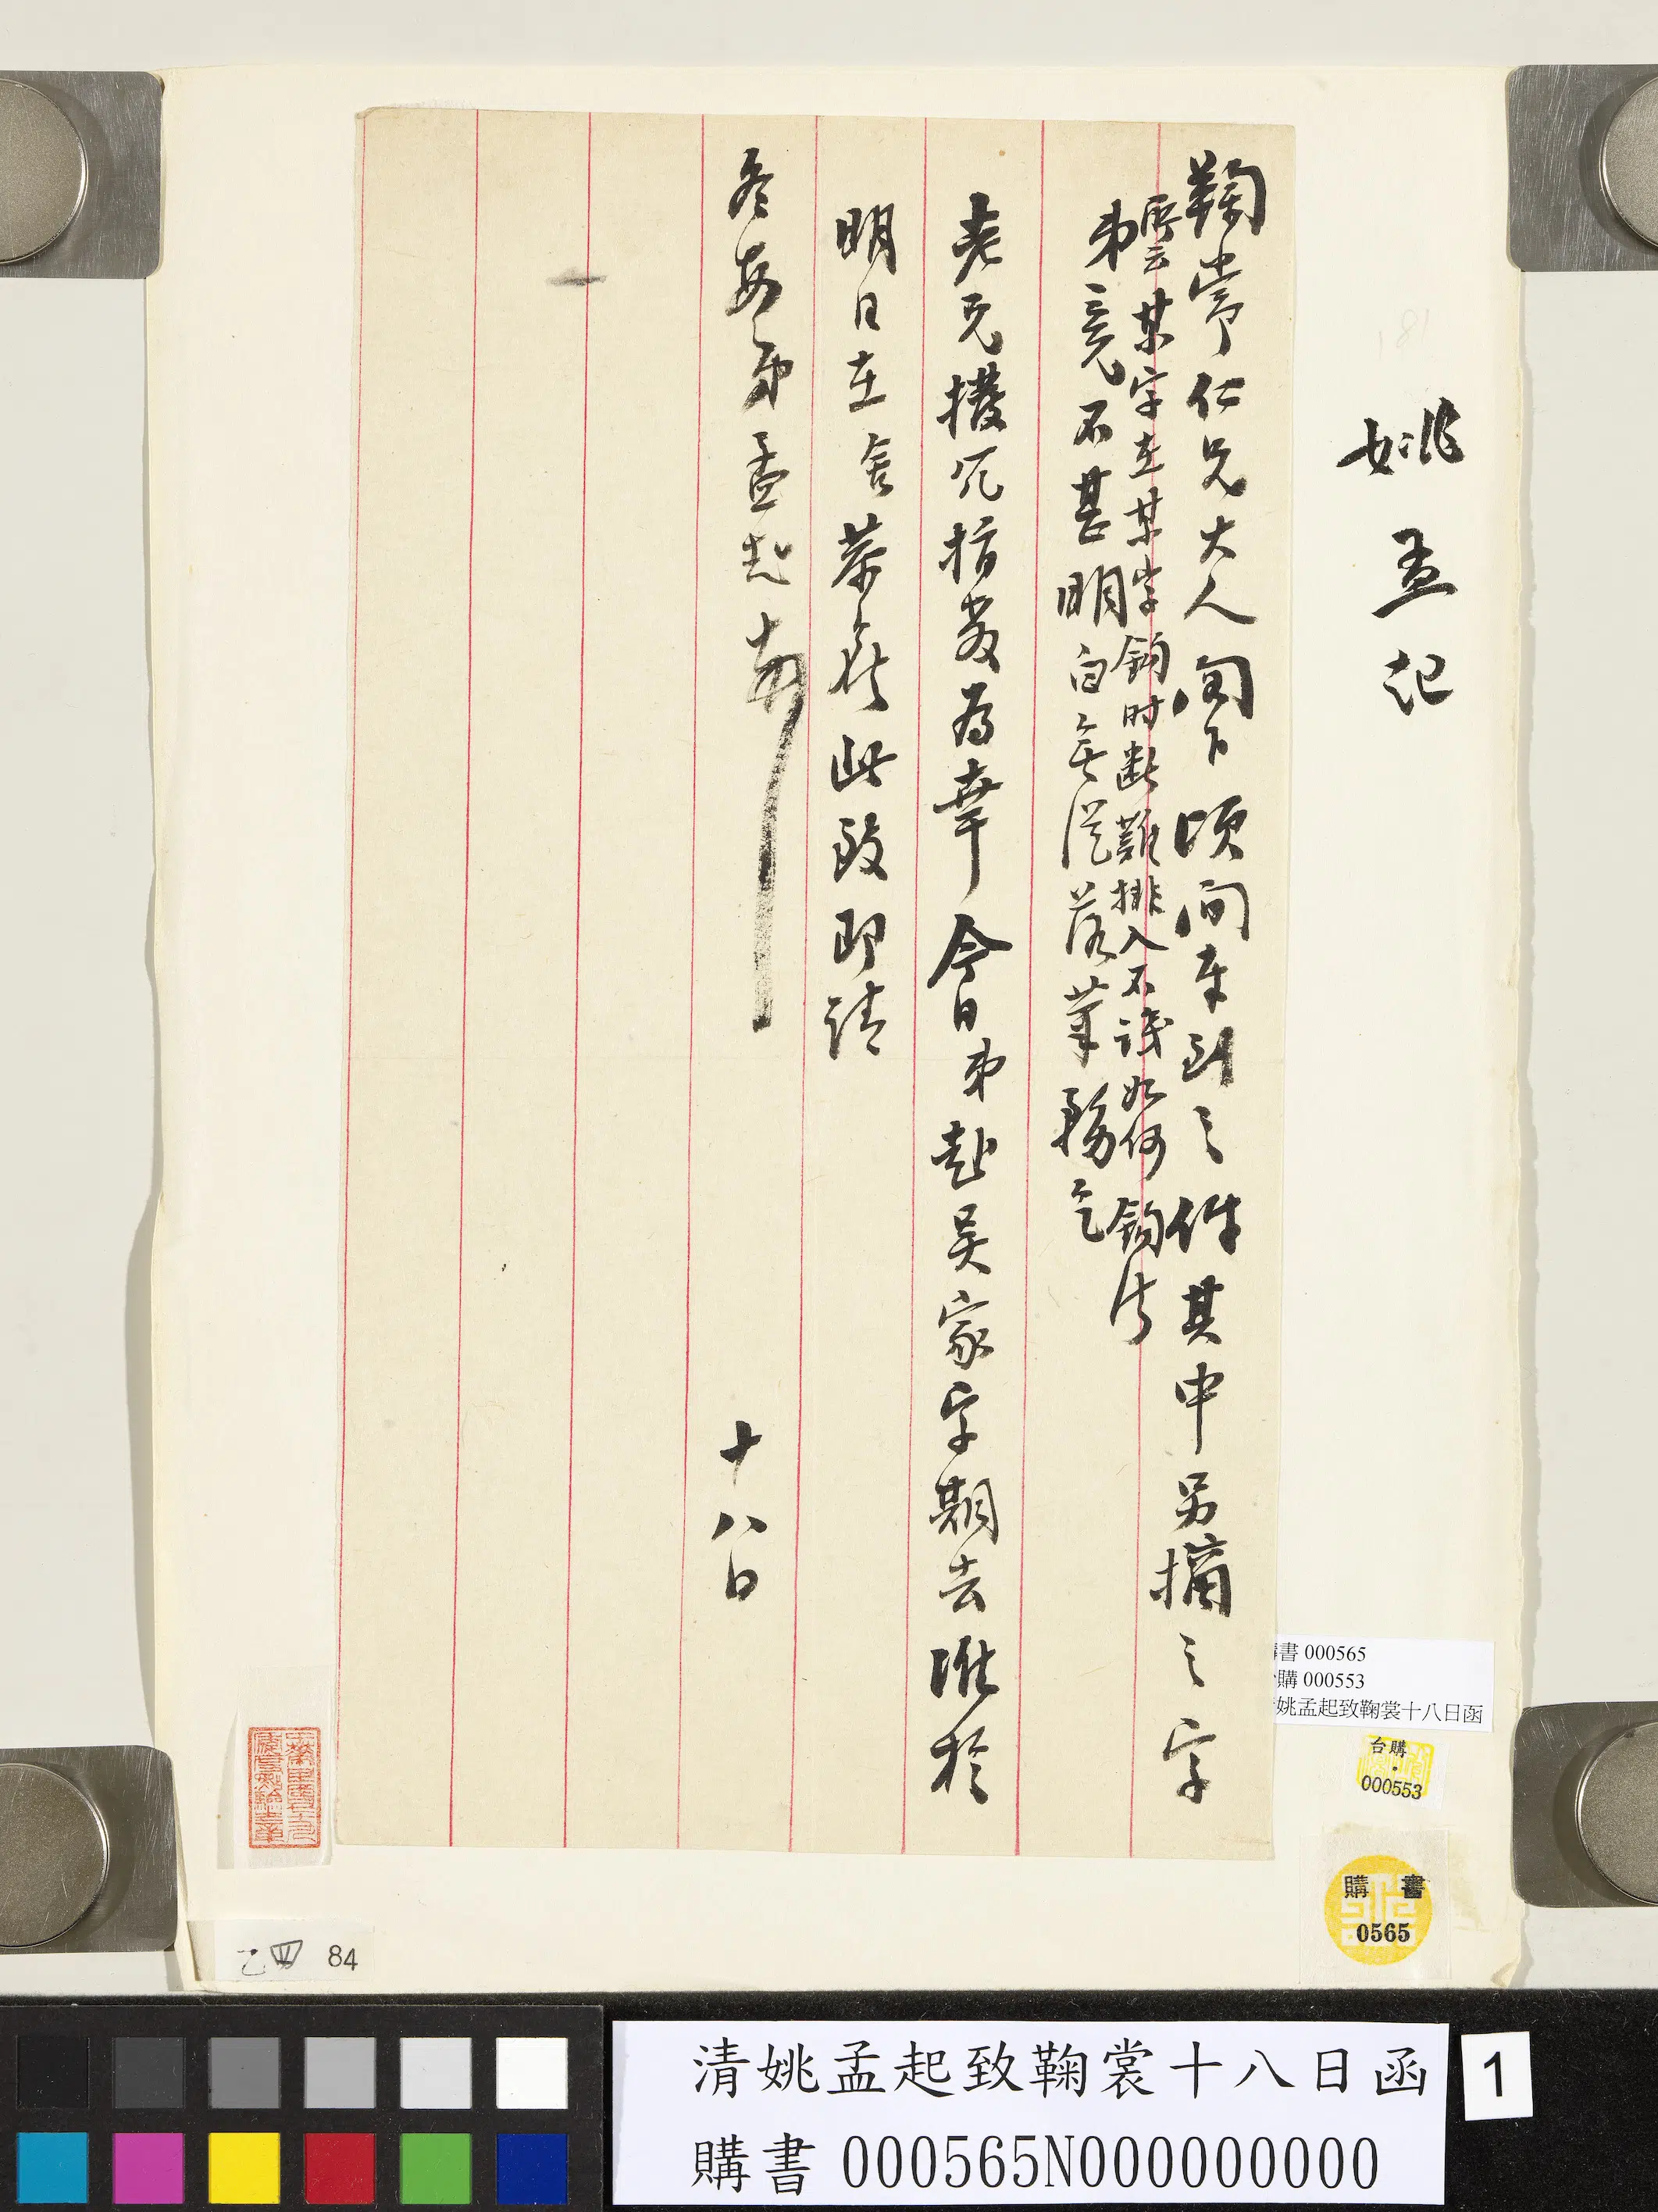 姚孟起
鞠常仁兄大人閣下頃問車到之件其中另摘之字
弟竟不甚明白無從落筆務乞
要云某字在某字鉤時斷難排入不識如何鉤法
老兄撥冗指发為幸今日弟赴吳家字期去準於
明日在舍恭候此致即請
冬安弟孟起
十八日
購書 000565
購 000553
姚孟起致鞠裳十八日函
台購
000553
購書
0565
乙四 84
清姚孟起致鞠裳十八日函
購書 000565N000000000
1